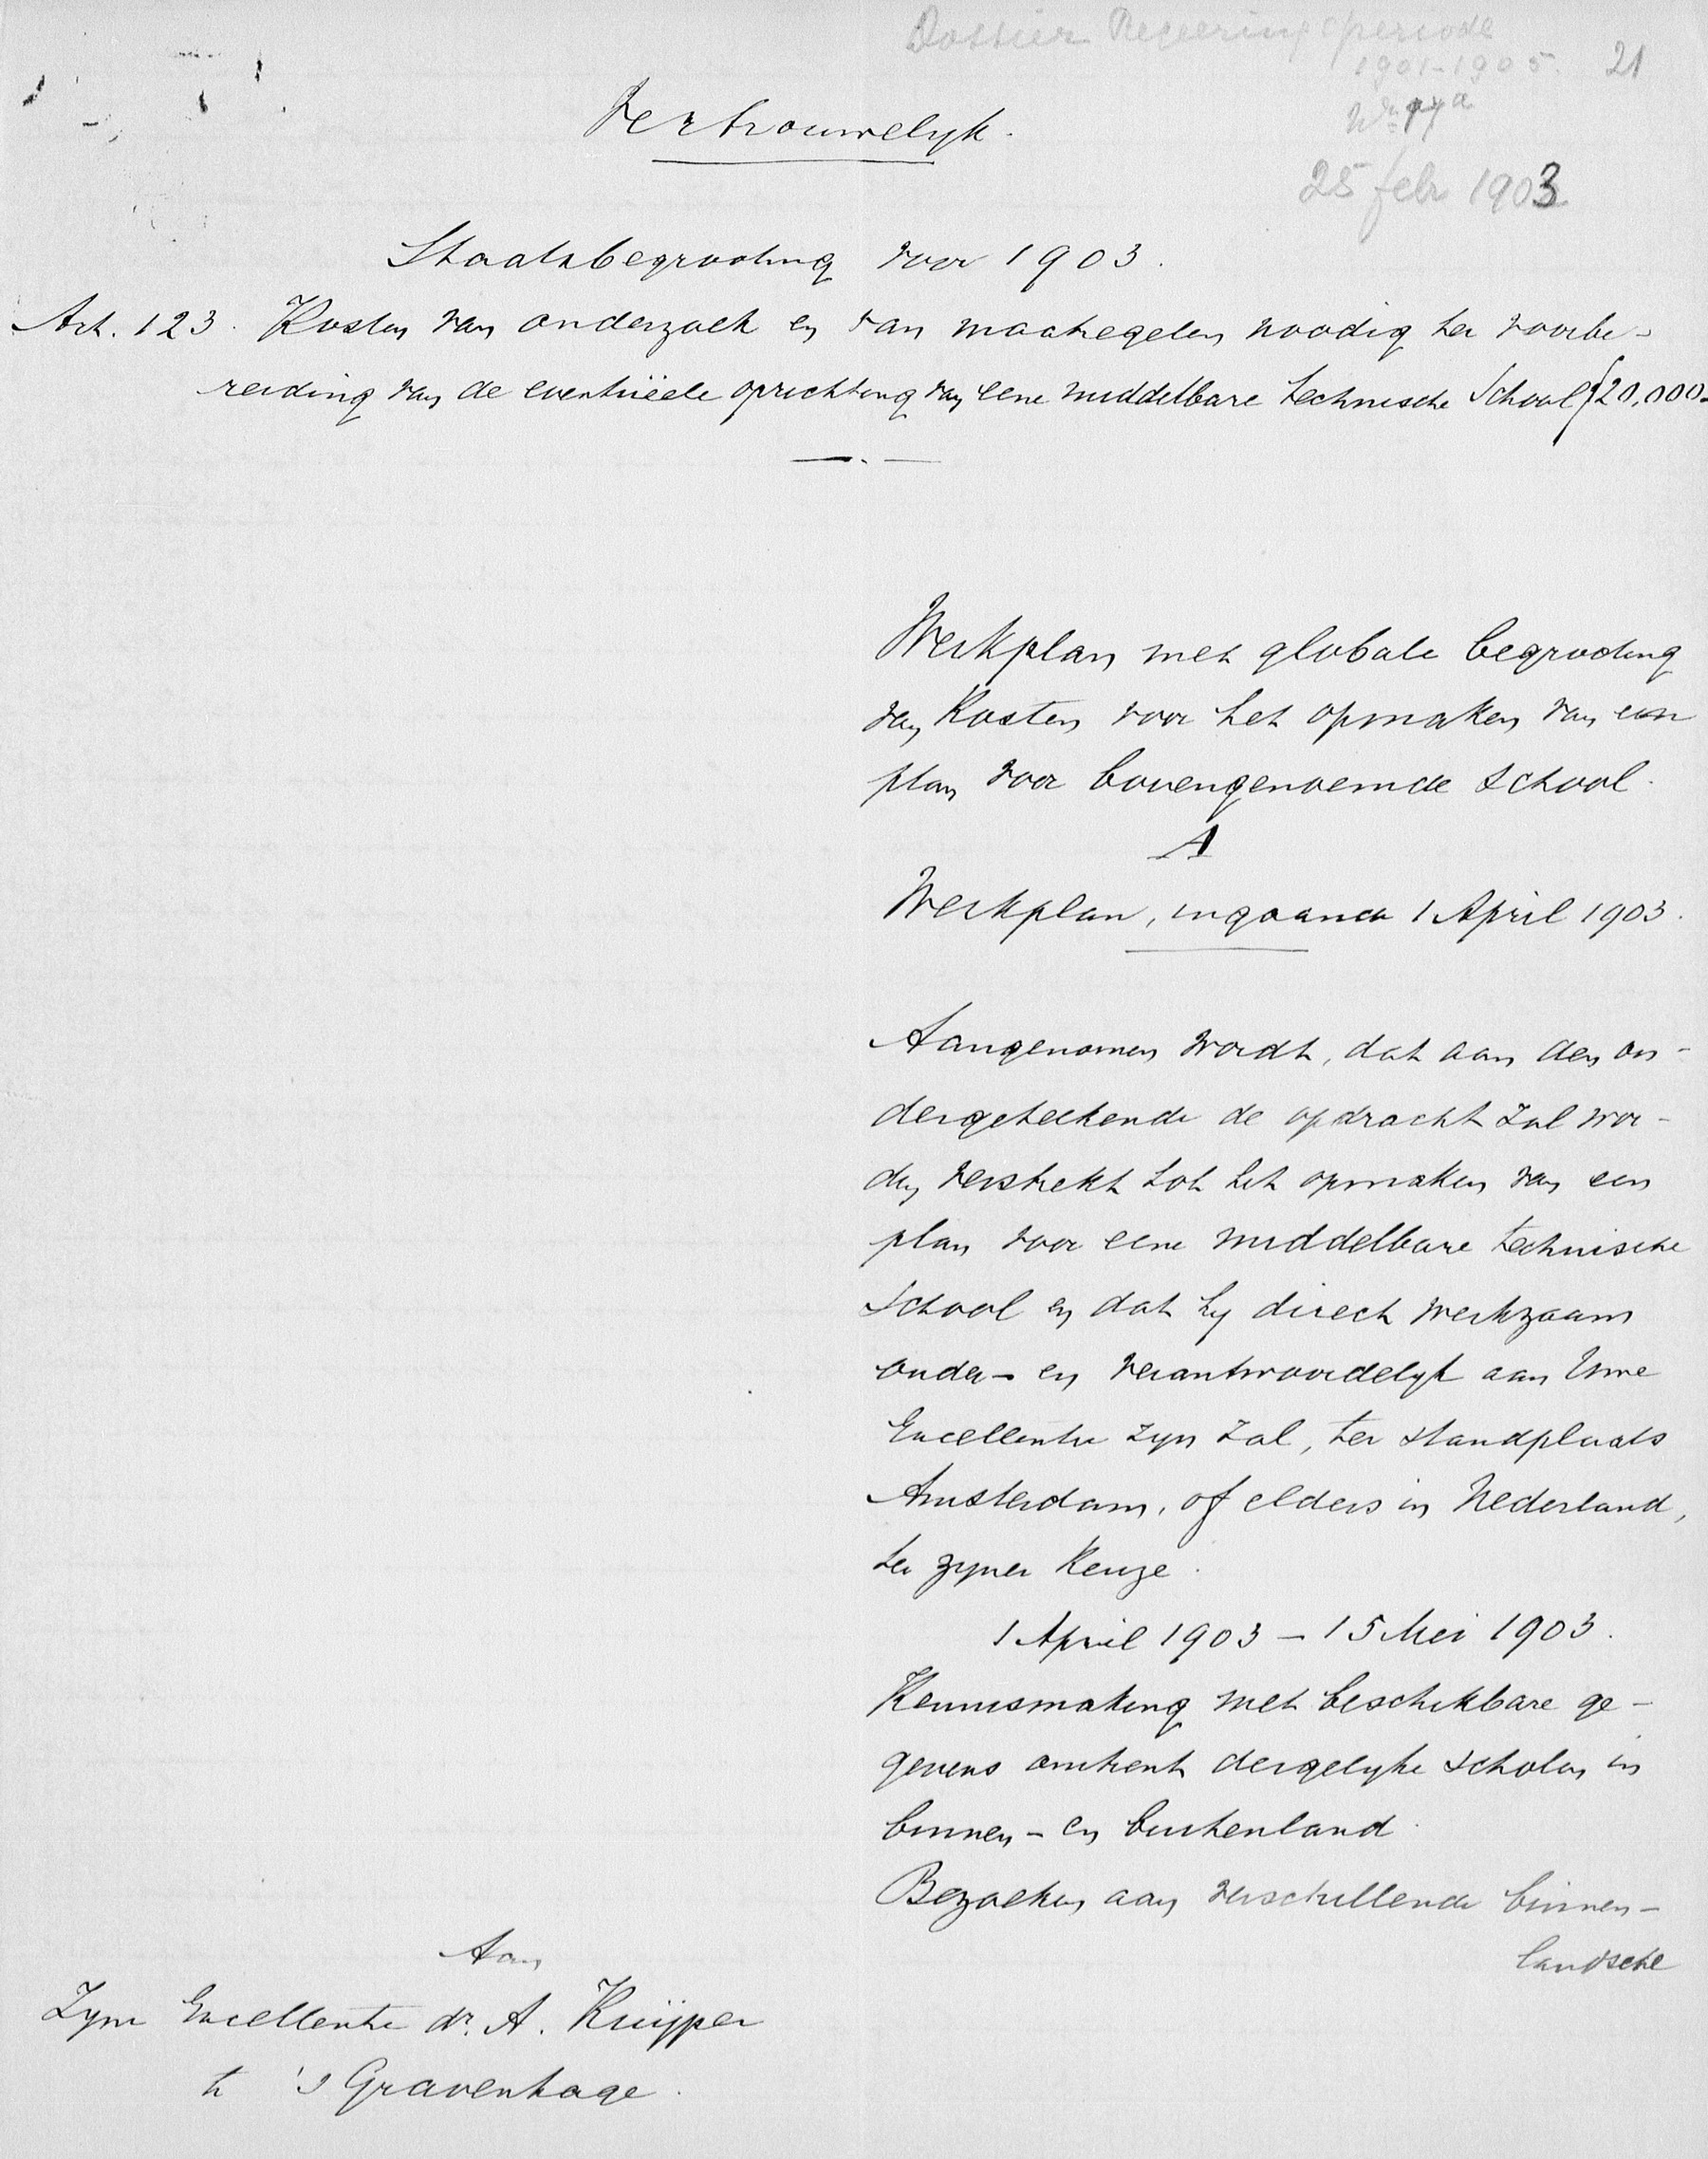 Dossier Regeeringsperiode
1901-1905. 21
25 febr 1903
Vertrouwelyk.
Staatsbegrooting voor 1903.
Art. 123. Kosten van onderzoek en van maatregelen noodig ter voorbe-
reiding van de eventuëele oprichting van eene middelbare technische School f 20.000.-
Werkplan met globale begrooting
van Kosten voor het opmaken van een
plan voor bovengenoemde school.
A
Werkplan, ingaande 1 April 1903.
Aangenomen wordt, dat aan den on-
dergeteekende de opdracht zal wor-
den verstrekt tot het opmaken van een
plan voor eene middelbare technische
School en dat hy direct werkzaam
onder- en verantwoordelyk aan Uwe
Excellentie zyn zal, ter standplaats
Amsterdam, of elders in Nederland,
ter zyner Keuze.
1 April 1903 - 15 Mei 1903.
Kennismaking met beschikbare ge-
gevens omtrent dergelyke scholen in
binnen- en buitenland.
Bezoeken aan verschillende binnen-
landsche
Aan
Zyne Excellentie dr. A. Kuijper
te 's Gravenhage.